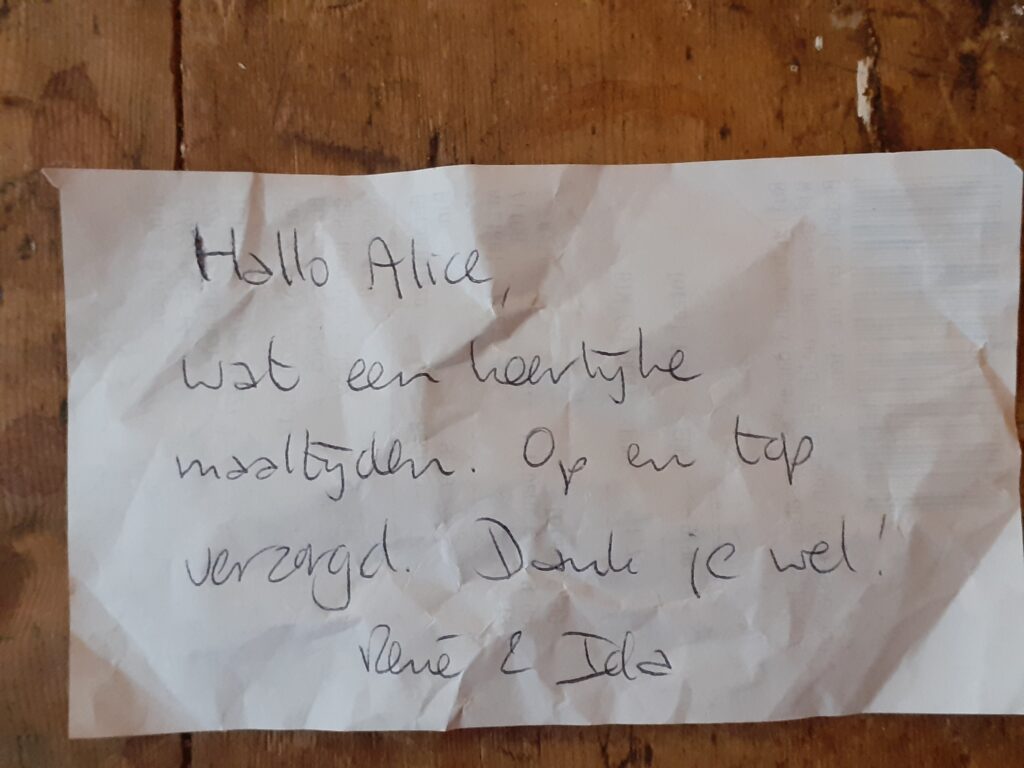 Hallo Alice,
wat een heerlijke
maaltijden. Op en top
verzorgd. Dank je wel!
René & Ida